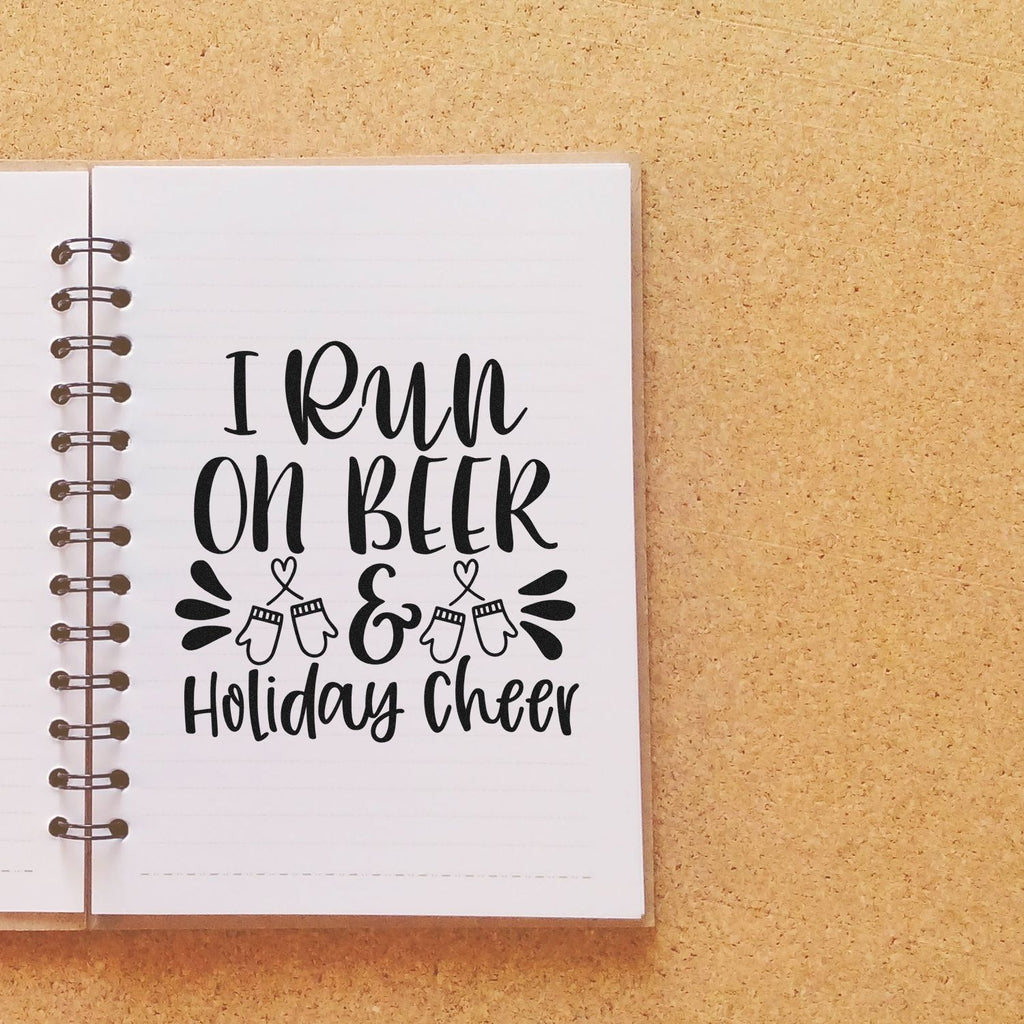 I Run
ON BEER
&
Holiday Cheer